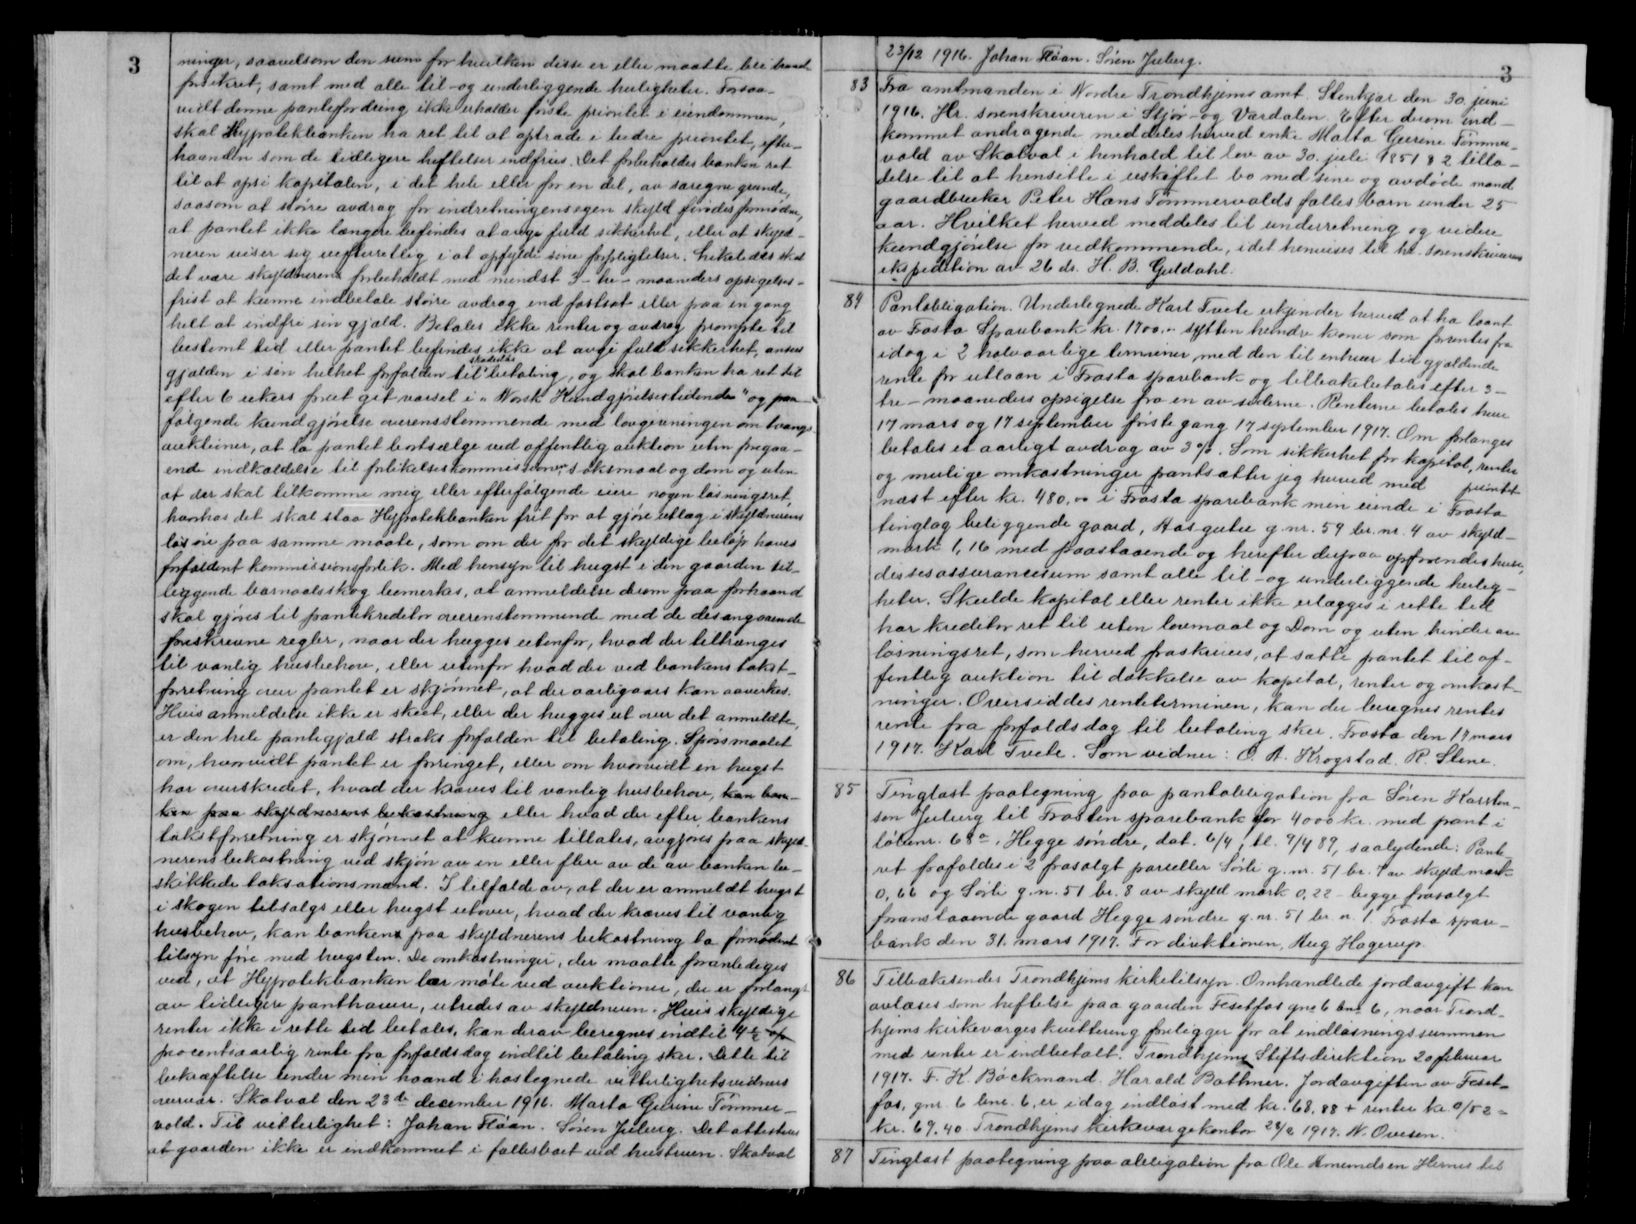 3
ninger, saavelsom den sum for hvilken disse er eller maatte bli brand-
forsikret, samt med alle til- og underliggende herligheter. Forsaa-
vidt denne pantefordring ikke erholder første prioritet i eiendommen,
skal Hypotekbanken ha ret til at optræde i bedre prioritet, efter-
haanden som de tidligere heftelser indfries. Det forbeholdes banken ret
til at opsi kapitalen, i det hele eller for en del, av særegne grunde,
saasom at større avdrag for indretningens egen skyld findes fornøden,
at pantet ikke længere befindes at avgi fuld sikkerhet, eller at skyld-
neren viser sig uefterrettelig i at opfylde sine forpligtelser. Likeledes skal
det være skyldneren forbeholdt med mindst 3 - tre - maaneders opsigelses-
frist at kunne indbetale større avdrag end fastsat eller paa en gang
helt at indfri sin gjæld. Betales ikke renter og avdrag prompte til
bestemt tid eller pantet befindes ikke at avgi fuld sikkerhet, anses
gjælden i sin helhet forfalden til skadesløs betaling, og skal banken ha ret til
efter 6 ukers forut git varsel i "Norsk Kundgjørelsestidende" og paa-
følgende kundgjørelse overensstemmende med lovgivningen om tvangs-
auktioner, at la pantet bortsælge ved offentlig auktion uten foregaa-
ende indkaldelse til forlikelseskommission, søksmaal og dom og uten
at der skal tilkomme mig eller efterfølgende eiere nogen løsningsret,
hvorhos det skal staa Hypotekbanken frit for at gjøre utlæg i skyldnerens
løsøre paa samme maate, som om der for det skyldige beløp haves
forfaldent kommissionsforlik. Med hensyn til hugst i den gaarden til-
liggende barnaalsskog bemerkes, at anmeldelse derom paa forhaand
skal gjøres til pantekreditor overensstemmende med de desangaaende
foreskrevne regler, naar der hugges utenfor, hvad der tiltrænges
til vanlig husbehov, eller utenfor hvad der ved bankens takst-
forretning over pantet er skjønnet, at der aarligaars kan aavirkes.
Hvis anmeldelse ikke er skeet, eller der hugges ut over det anmeldte,
er den hele pantegjæld straks forfalden til betaling. Spørsmaalet
om, hvorvidt pantet er forringet, eller om hvorvidt en hugst
har overskredet, hvad der kræves til vanlig husbehov, kan ban-
ken paa skyldnerens bekostning eller hvad der efter bankens
takstforretning er skjønnet at kunne tillates, avgjøres paa skyld-
nerens bekostning ved skjøn av en eller flere av de av banken be-
skikkede taksationsmænd. I tilfælde av, at der er anmeldt hugst
i skogen tilsalgs eller hugst utover, hvad der kræves til vanlig
husbehov, kan banken paa skyldnerens bekostning la fornødent
tilsyn føre med hugsten. De omkostninger, der maatte foranlediges
ved, at Hypotekbanken lar møte ved auktioner, der er forlangt
av tidligere panthavere, utredes av skyldneren. Hvis skyldige
renter ikke i rette tid betales, kan derav beregnes indtil 4½
procentsaarlig rente fra forfaldsdag indtil betaling sker. Dette til
bekræftelse under min haand i hostegnede vitterlighetsvidners
overvær. Skatval den 23de december 1916. Marta Gurine Tømmer-
vold. Til vitterlighet: Johan Fløan. Søren Juberg. Det attesteres
at gaarden ikke er indkommet i fællesboet ved hustruen. Skatval
3
23/12 1916. Johan Fløan. Søren Juberg.
83 Fra amtmanden i Nordre Trondhjems amt. Stenkjær den 30. juni
1916. Hr. sorenskriveren i Stjør- og Værdalen. Efter derom ind-
kommet andragende meddeles herved enke Marta Gurine Tømmer-
vold av Skatval i henhold til lov av 30. juli 1851 § 2 tilla-
delse til at hensitte i uskiftet bo med sine og avdøde mand
gaardbruker Peter Hans Tømmervolds fælles barn under 25
aar. Hvilket herved meddeles til underretning og videre
kundgjørelse for vedkommende, idet henvises til hr. sorenskriverens
ekspedition av 26 ds. H. B. Guldahl.
84 Pantobligation. Undertegnede Karl Tvete erkjender herved at ha laant
av Frosta Sparebank kr. 1700,- sytten hundre kroner som forrentes fra
idag i 2 halvaarlige terminer, med den til enhver tid gjældende
rente for utlaan i Frosta sparebank og tilbakebetales efter 3-
tre - maaneders opsigelse fra en av siderne. Renterne betales hver
17 mars og 17 september første gang 17 september 1917. Om forlanges
betales et aarligt avdrag av 3 %. Som sikkerhet for kapital, renter
og mulige omkostninger pantsætter jeg herved med prioritet
næst efter kr. 480,00 i Frosta sparebank min eiende i Frosta
tinglag beliggende gaard, Aasgutu g.nr. 59 br.nr. 4 av skyld-
mark 1,16 med paastaaende og herefter derpaa opførendes huse,
dessesassurancesum samt alle til- og underliggende herlig-
heter. Skulde kapital eller renter ikke erlægges i rette tid
har kreditor ret til uten lovmaal og Dom og uten hinder av
løsningsret, som herved fraskrives, at sætte pantet til of-
fentlig auktion til dækkelse av kapital, renter og omkost-
ninger. Oversiddes renteterminen, kan der beregnes rentes
rente fra forfaldsdag til betaling sker. Frosta den 17 mars
1917. Karl Tvete. Som vidner: O. A. Krogstad. R. Stene.
85 Tinglæst paategning paa pantobligation fra Søren Karsten-
sen Juberg til Frosten sparebank for 4000 kr. med pant i
løbenr. 68a, Hegge søndre, dat. 6/4, tl. 9/4 89, saalydende: Pante-
ret frafaldes i 2 frasolgt parceller Sørli g.nr. 51 br. 7 av skyld mark
0,66 og Sørli g.n. 51 br. 8 av skyld mark 0,22 - begge frasolgt
foranstaaende gaard Hegge søndre g.nr. 51 br.n. 1. Frosta spare-
bank den 31. mars 1917. For direktionen, Aug Hagerup.
86 Tilbakesendes Trondhjems kirketilsyn. Omhandlede jordavgift kan
avlæses som heftelse paa gaarden Fesetfos gnr 6 bnr 6, naar Trond-
hjems kirkeværges kvittering foreligger for at indløsningssummen
med renter er indbetalt. Trondhjems Stiftsdirektion 20 februar
1917. F. K. Bøckmand. Harald Bothner. Jordavgiften av Feset-
fos, gnr. 6 bnr. 6, er idag indløst med kr. 68,88 + renter kr 0/52 =
kr. 69.40. Trondhjems kirkeværgekontor 28/2 1917. N. Ovesen.
87 Tinglæst paategning paa obligation fra Ole Amundsen Hernes til